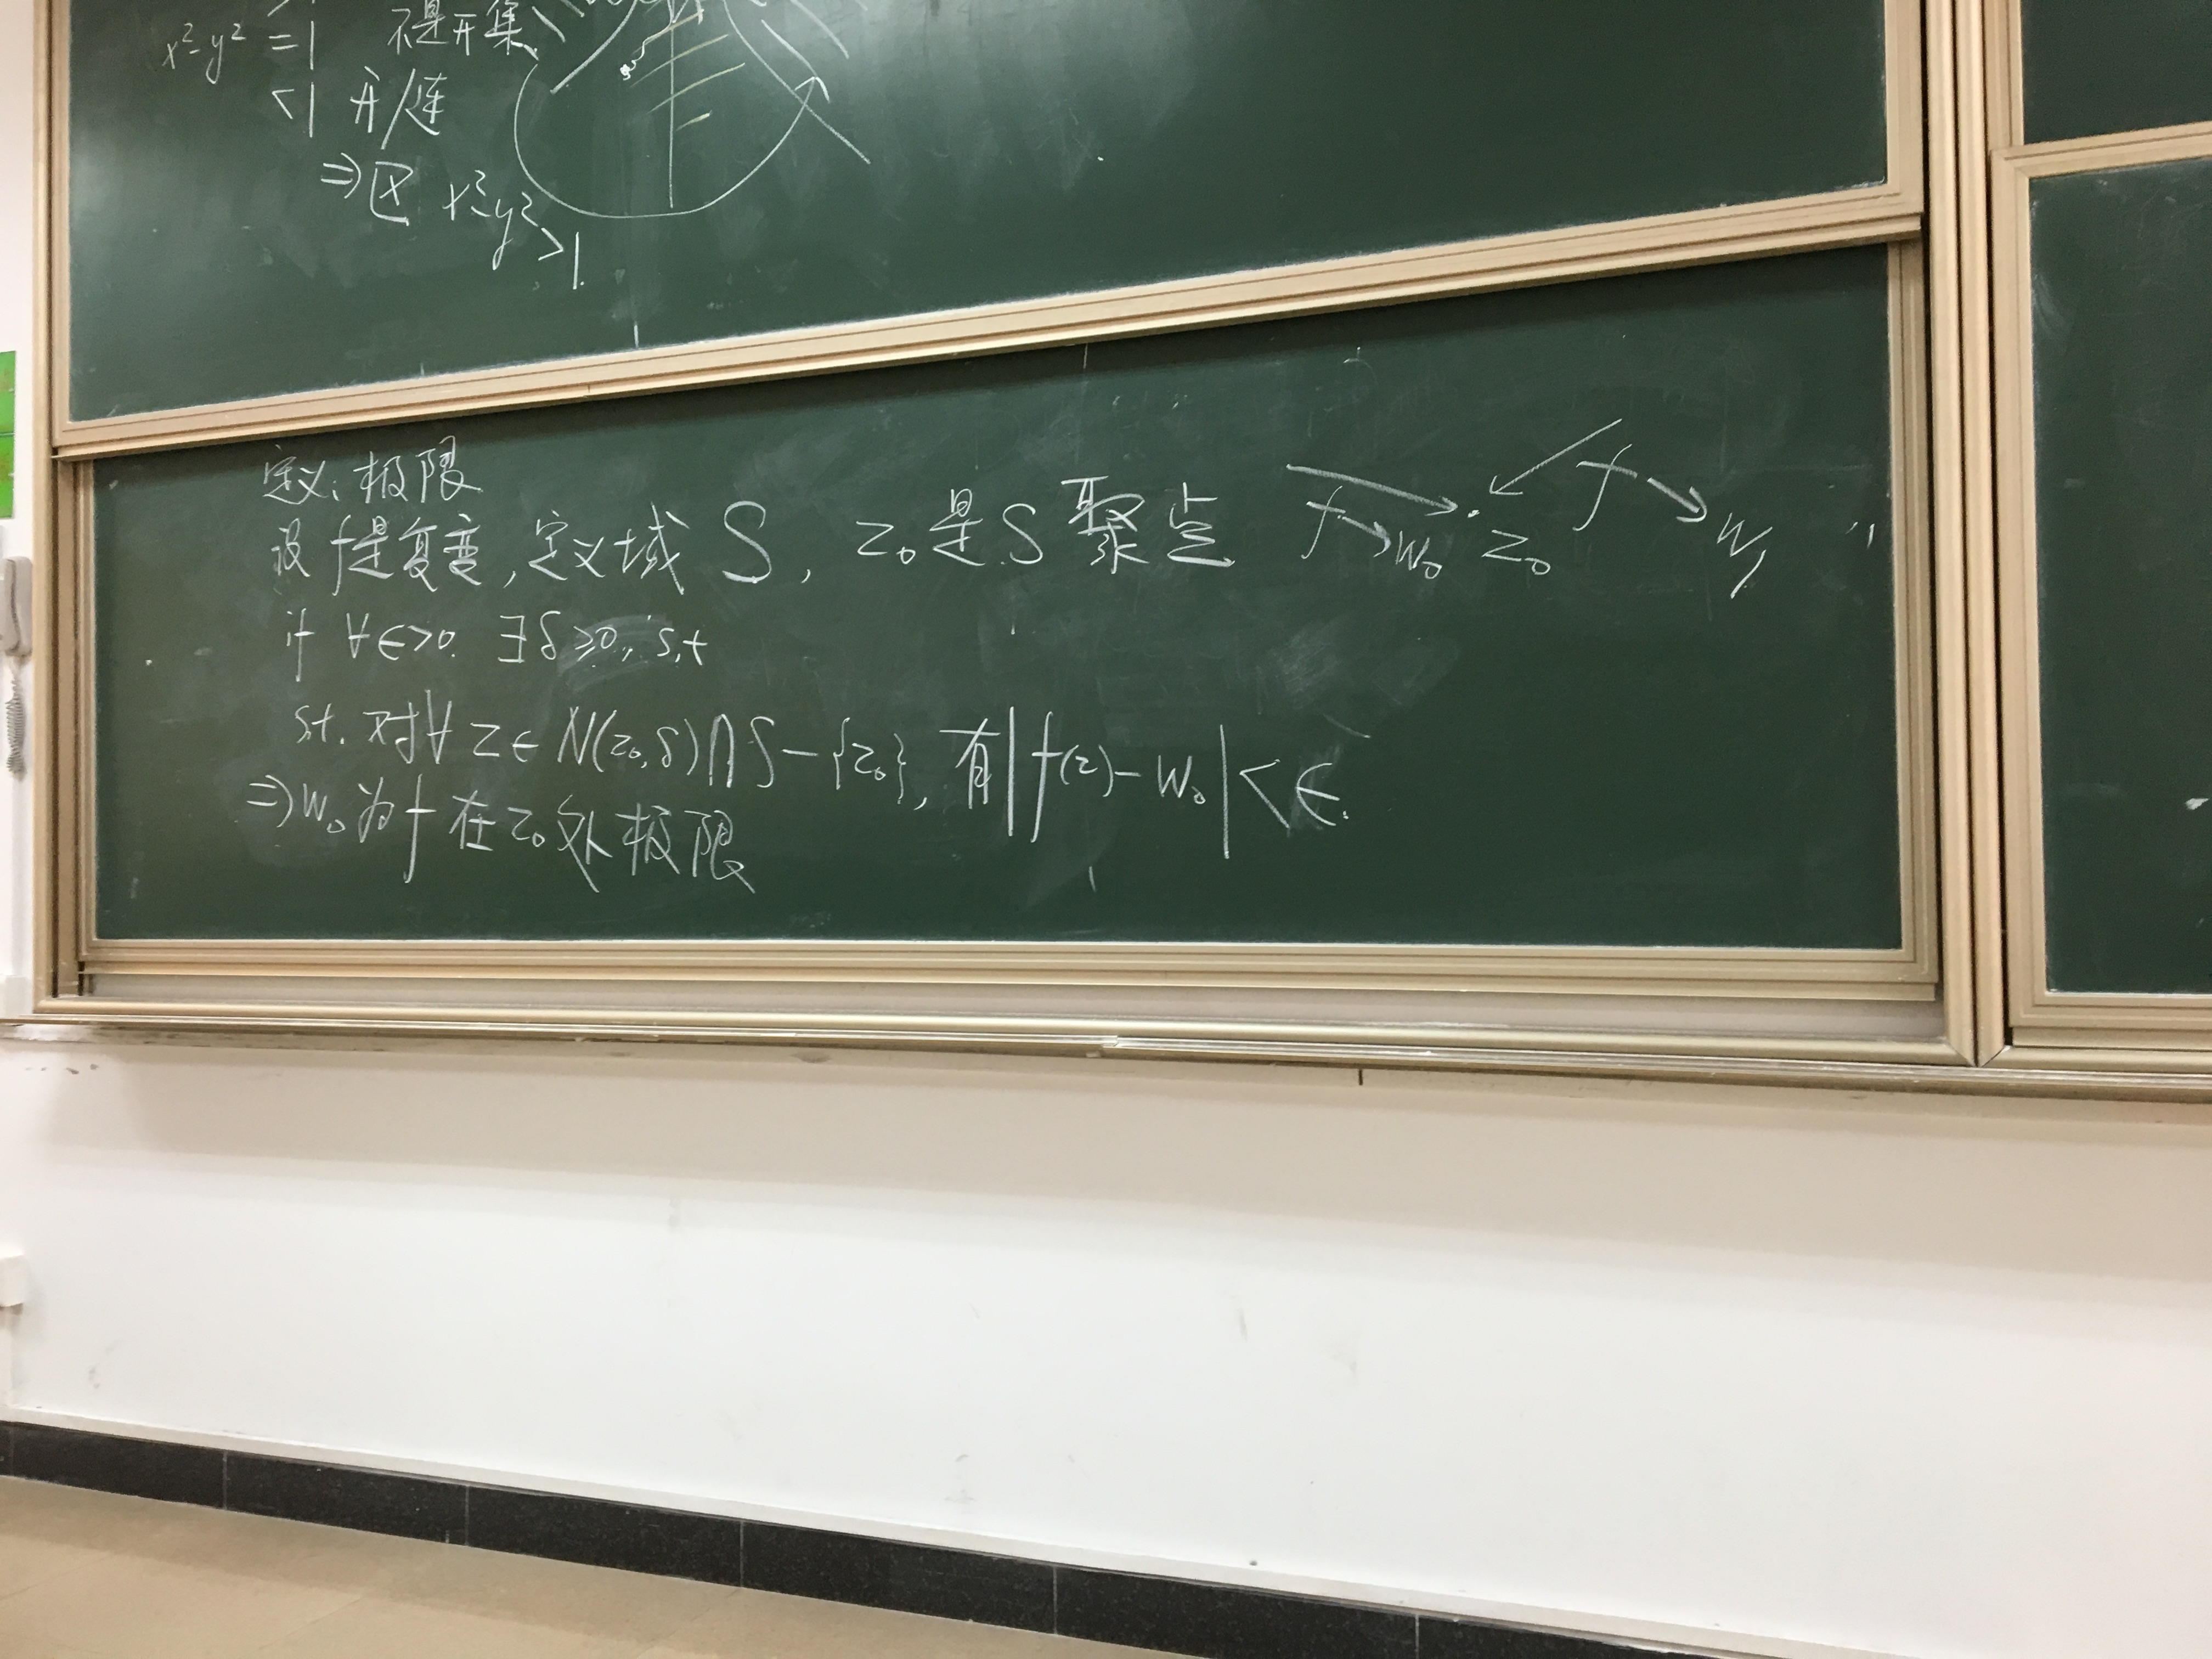 x²-y² =1 不是开集
<1 开/连
⇒区 x²-y²>1
定义:极限
设f是复变,定义域S,z₀是S聚点
f→w₀ z₀ f→w₁
if ∀ϵ>0. ∃δ≥0, s,t
st. 对∀z∈N(z₀,δ)∩S-{z₀},有|f(z)-w₀|<ϵ.
⇒w₀为f在z₀处极限